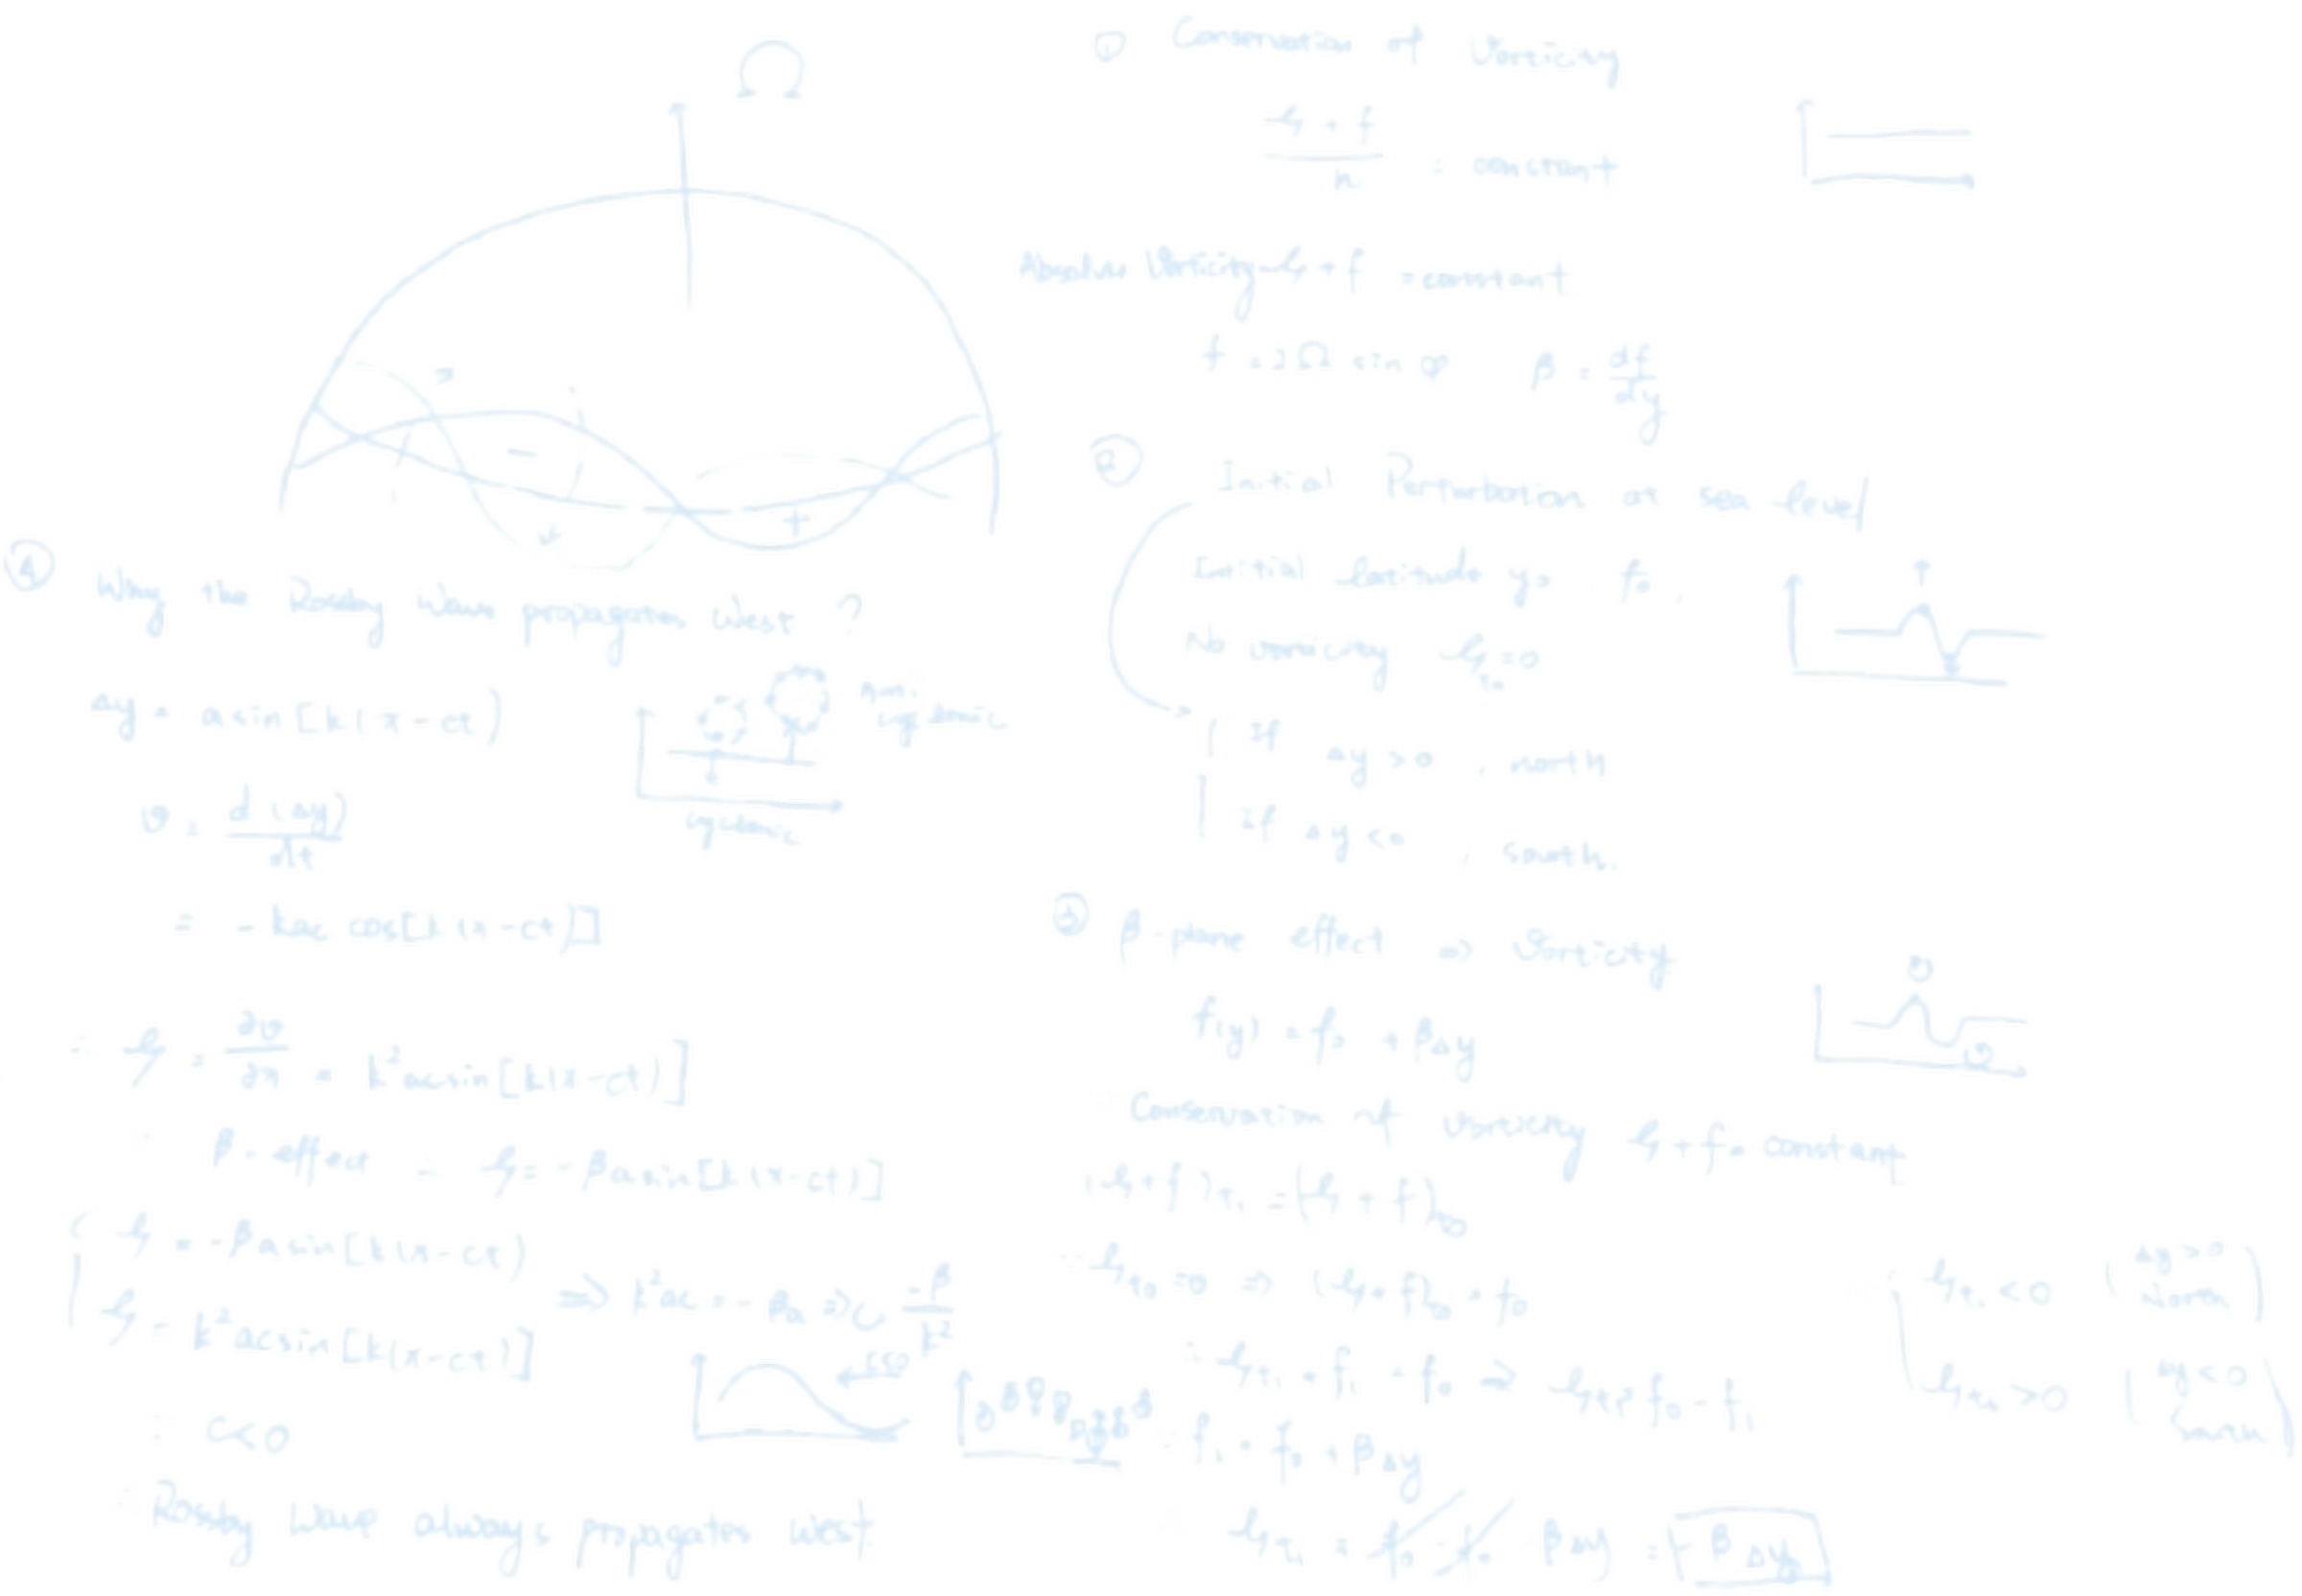 Ω
① Conservation of Vorticity
ζ + f / h = constant
Absolute Vorticity ζ + f = constant
f = 2Ω sin φ β = df/dy
② Initial Perturbation at sea level
Initial latitude y > f₀,
No vorticity ζt₀ = 0
If Δy > 0, north
if Δy < 0, south.
③ β-plane effect ⇒ Vorticity
f(y) = f₀ + βΔy
Conservation of vorticity ζ + f = constant
(ζ + f)t₁ = (ζ + f)t₀
∵ ζt₀ = 0 ⇒ (ζ + f)t₀ = f₀
∴ ζt₁ + f₁ = f₀ ⇒ ζt₁ = f₀ - f₁
∵ f₁ = f₀ + βΔy
∴ ζt₁ = f₀ - f₀ - βΔy = -βΔy
ζt₁ < 0 (Δy > 0 North)
ζt₁ > 0 (Δy < 0 South)
-
+
④ Why the Rossby Wave propagates West ?
Δy = a sin [k(x - ct)
v = d(Δy)/dt
= - kac cos[k(x - ct)]
∴ ζ = ∂v/∂x = k²ac sin[k(x - ct)]
∵ β-effect - ζ = -βa sin[k(x - ct)]
ζ = -βa sin[k(x - ct)
ζ = k²ac sin[k(x - ct)]
⇒ k²ac = -βa ⇒ c -β/k²
∴ c < 0
∴ Rossby Wave always propagates West
Anti cyclonic
cyclonic
c<0